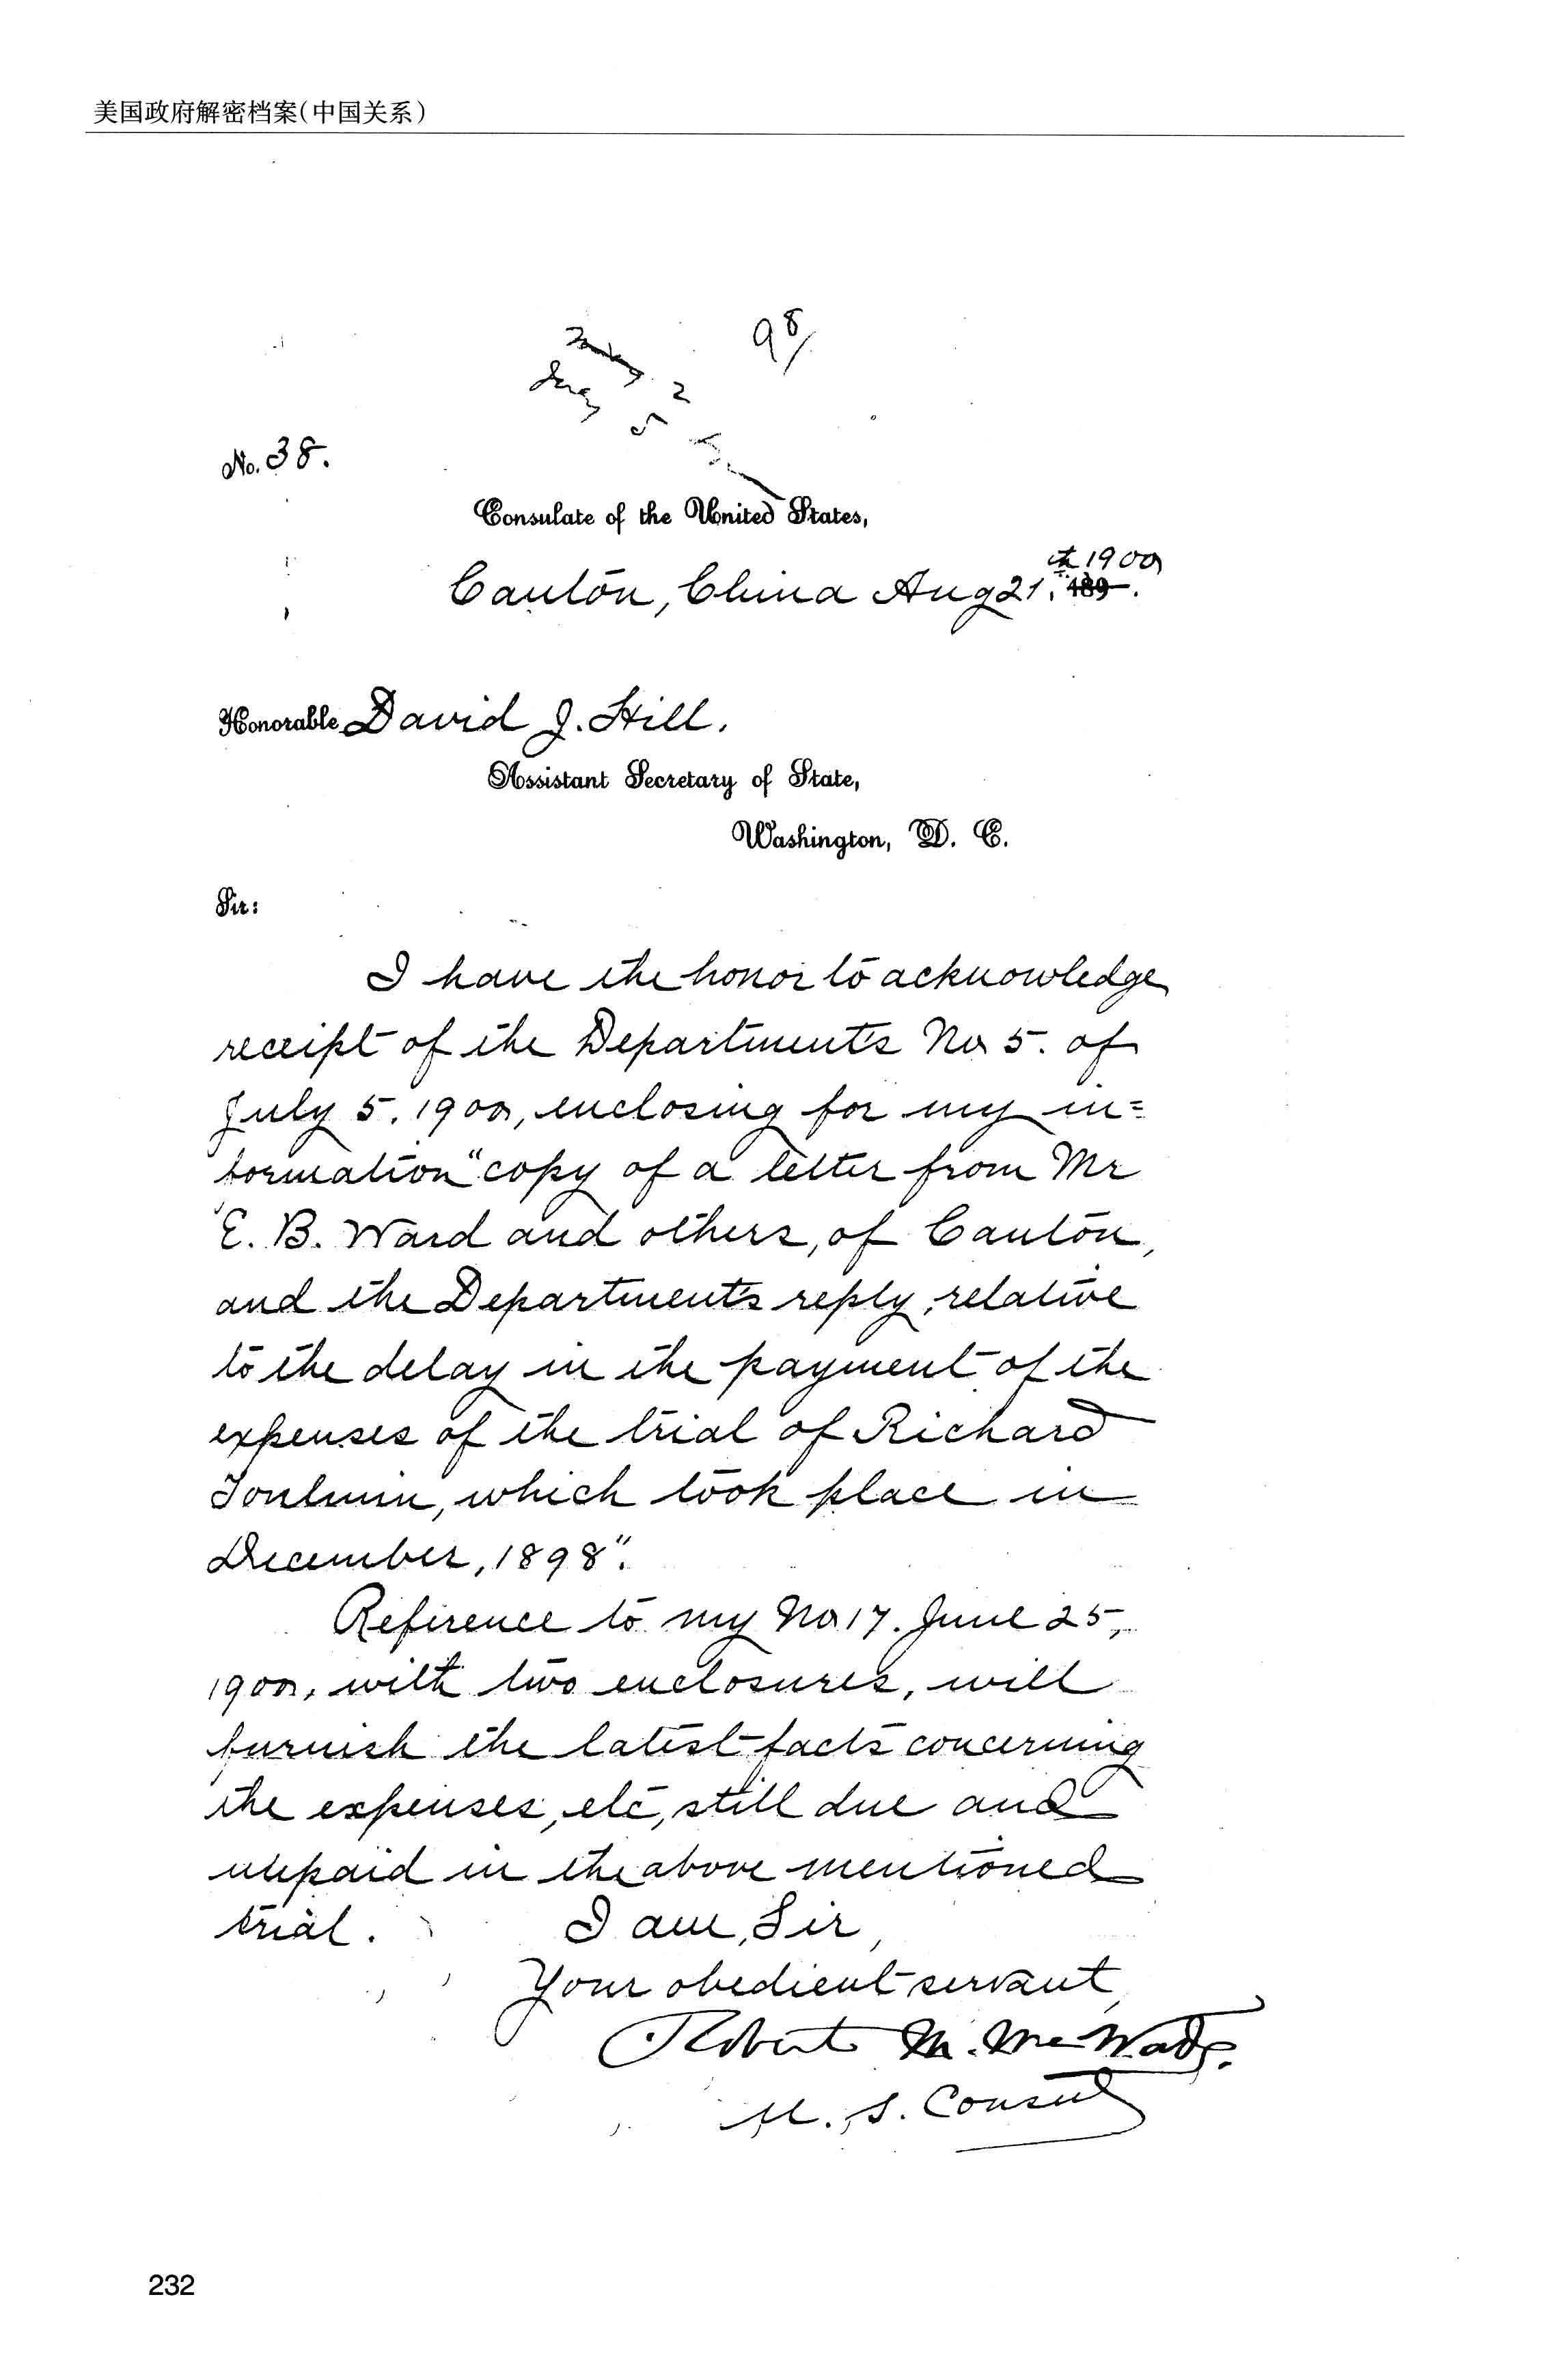 美国政府解密档案(中国关系)
98/
2
5
No. 38.
Consulate of the United States,
Canton, China Aug 21, 189 .
st 1900
Honorable David J. Hill,
Assistant Secretary of State,
Washington, D. C.
Sir:
I have the honor to acknowledge
receipt of the Department's No 5. of
July 5, 1900, enclosing for my in=
formation "copy of a letter from Mr
E. B. Ward and others, of Canton,
and the Department's reply, relative
to the delay in the payment of the
expenses of the trial of Richard
Toulmin, which took place in
December, 1898".
Reference to my No 17. June 25,
1900, with two enclosures, will
furnish the latest facts concerning
the expenses, etc, still due and
unpaid in the above mentioned
trial. I am, Sir,
Your obedient servant,
Robert M. McWade.
U. S. Consul
232